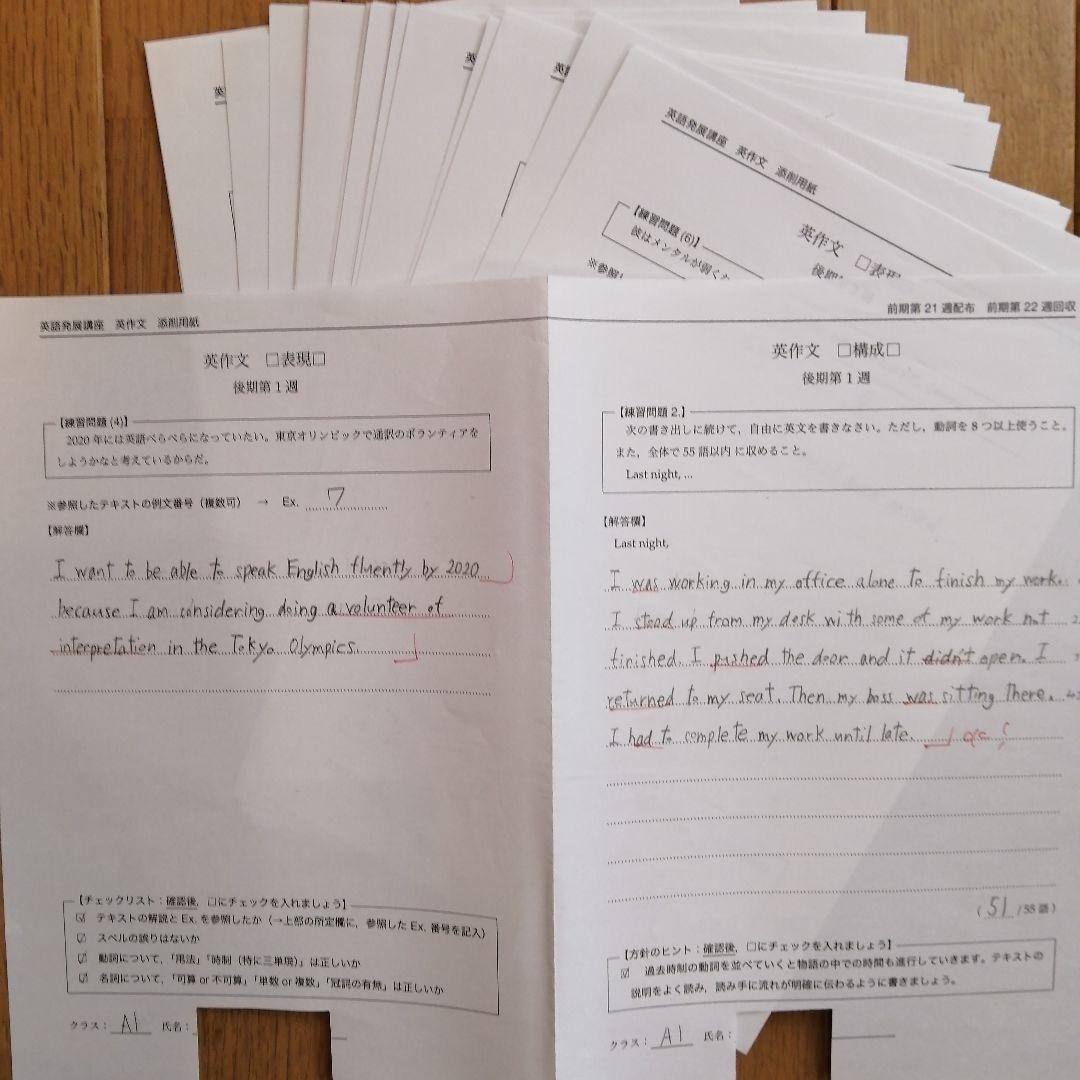 英
英
英
英語発展講座 英作文 添削用紙
英作文 □表現
後期
【練習問題(6)】
彼はメンタルが弱くな
※参照し
英語発展講座 英作文 添削用紙
英作文 □表現□
後期第1週
【練習問題(4)】
2020年には英語ぺらぺらになっていたい。東京オリンピックで通訳のボランティアを
しようかなと考えているからだ。
※参照したテキストの例文番号（複数可） → Ex. 7
【解答欄】
I want to be able to speak English fluently by 2020
because I am considering doing a volunteer of
interpretation in the Tokyo Olympics.
【チェックリスト：確認後，□にチェックを入れましょう】
☑ テキストの解説とEx.を参照したか（→上部の所定欄に，参照したEx.番号を記入）
☑ スペルの誤りはないか
☑ 動詞について，「用法」「時制（特に三単現）」は正しいか
☑ 名詞について，「可算or不可算」「単数or複数」「冠詞の有無」は正しいか
クラス： A1 氏名：
前期第21週配布 前期第22週回収
英作文 □構成□
後期第1週
【練習問題2.】
次の書き出しに続けて，自由に英文を書きなさい。ただし，動詞を8つ以上使うこと。
また，全体で55語以内に収めること。
Last night, ...
【解答欄】
Last night,
I was working in my office alone to finish my work.
I stood up from my desk with some of my work not
finished. I pushed the door and it didn't open. I
returned to my seat. Then my boss was sitting there.
I had to complete my work until late.
（ 51 / 55語）
【方針のヒント：確認後，□にチェックを入れましょう】
☑ 過去時制の動詞を並べていくと物語の中での時間も進行していきます。テキストの
説明をよく読み，読み手に流れが明確に伝わるように書きましょう。
クラス： A1 氏名：